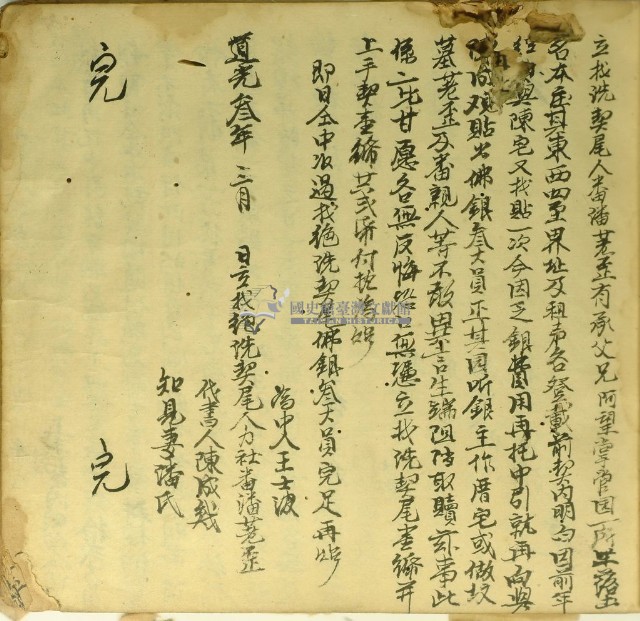 立找洗契尾人番潘茗歪有承父兄 阿望 管園一所坐落土
名本庄其東西四至界址及租聲各登載前契內明白因前年
與陳宅又找貼一次今因乏銀費用再托中引就再向與
頭貼出佛銀叁大員正其園听銀主作厝宅或做坟
墓茗歪及番親人等不敢異言生端阻擋取贖亦事此
係二比甘愿各無反悔恐口無憑立找洗契尾壹紙并
上手契壹紙共弍紙付執為炤
即日仝中收過找絕洗契尾佛銀叁大員完足再炤
為中人王士波
道光叁年 三月 日立找絕洗契尾人力社番潘茗歪
代書人陳成裁
知見妻潘氏
完 完
國史館臺灣文獻館
TAIWAN HISTORICA